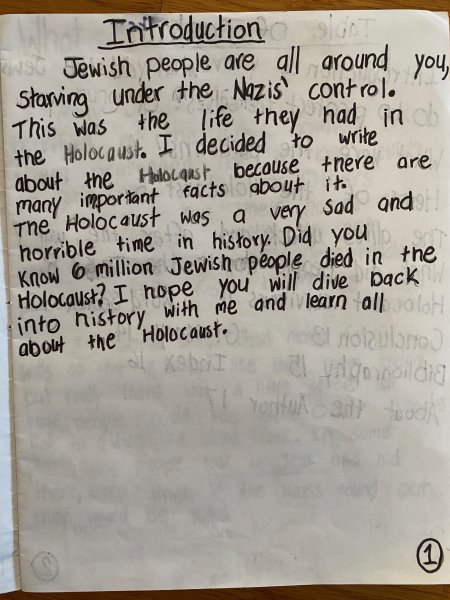 Introduction
Jewish people are all around you,
starving under the Nazis' control.
This was the life they had in
the Holocaust. I decided to write
about the Holocaust because there are
many important facts about it.
The Holocaust was a very sad and
horrible time in history. Did you
know 6 million Jewish people died in the
Holocaust? I hope you will dive back
into history with me and learn all
about the Holocaust.
1